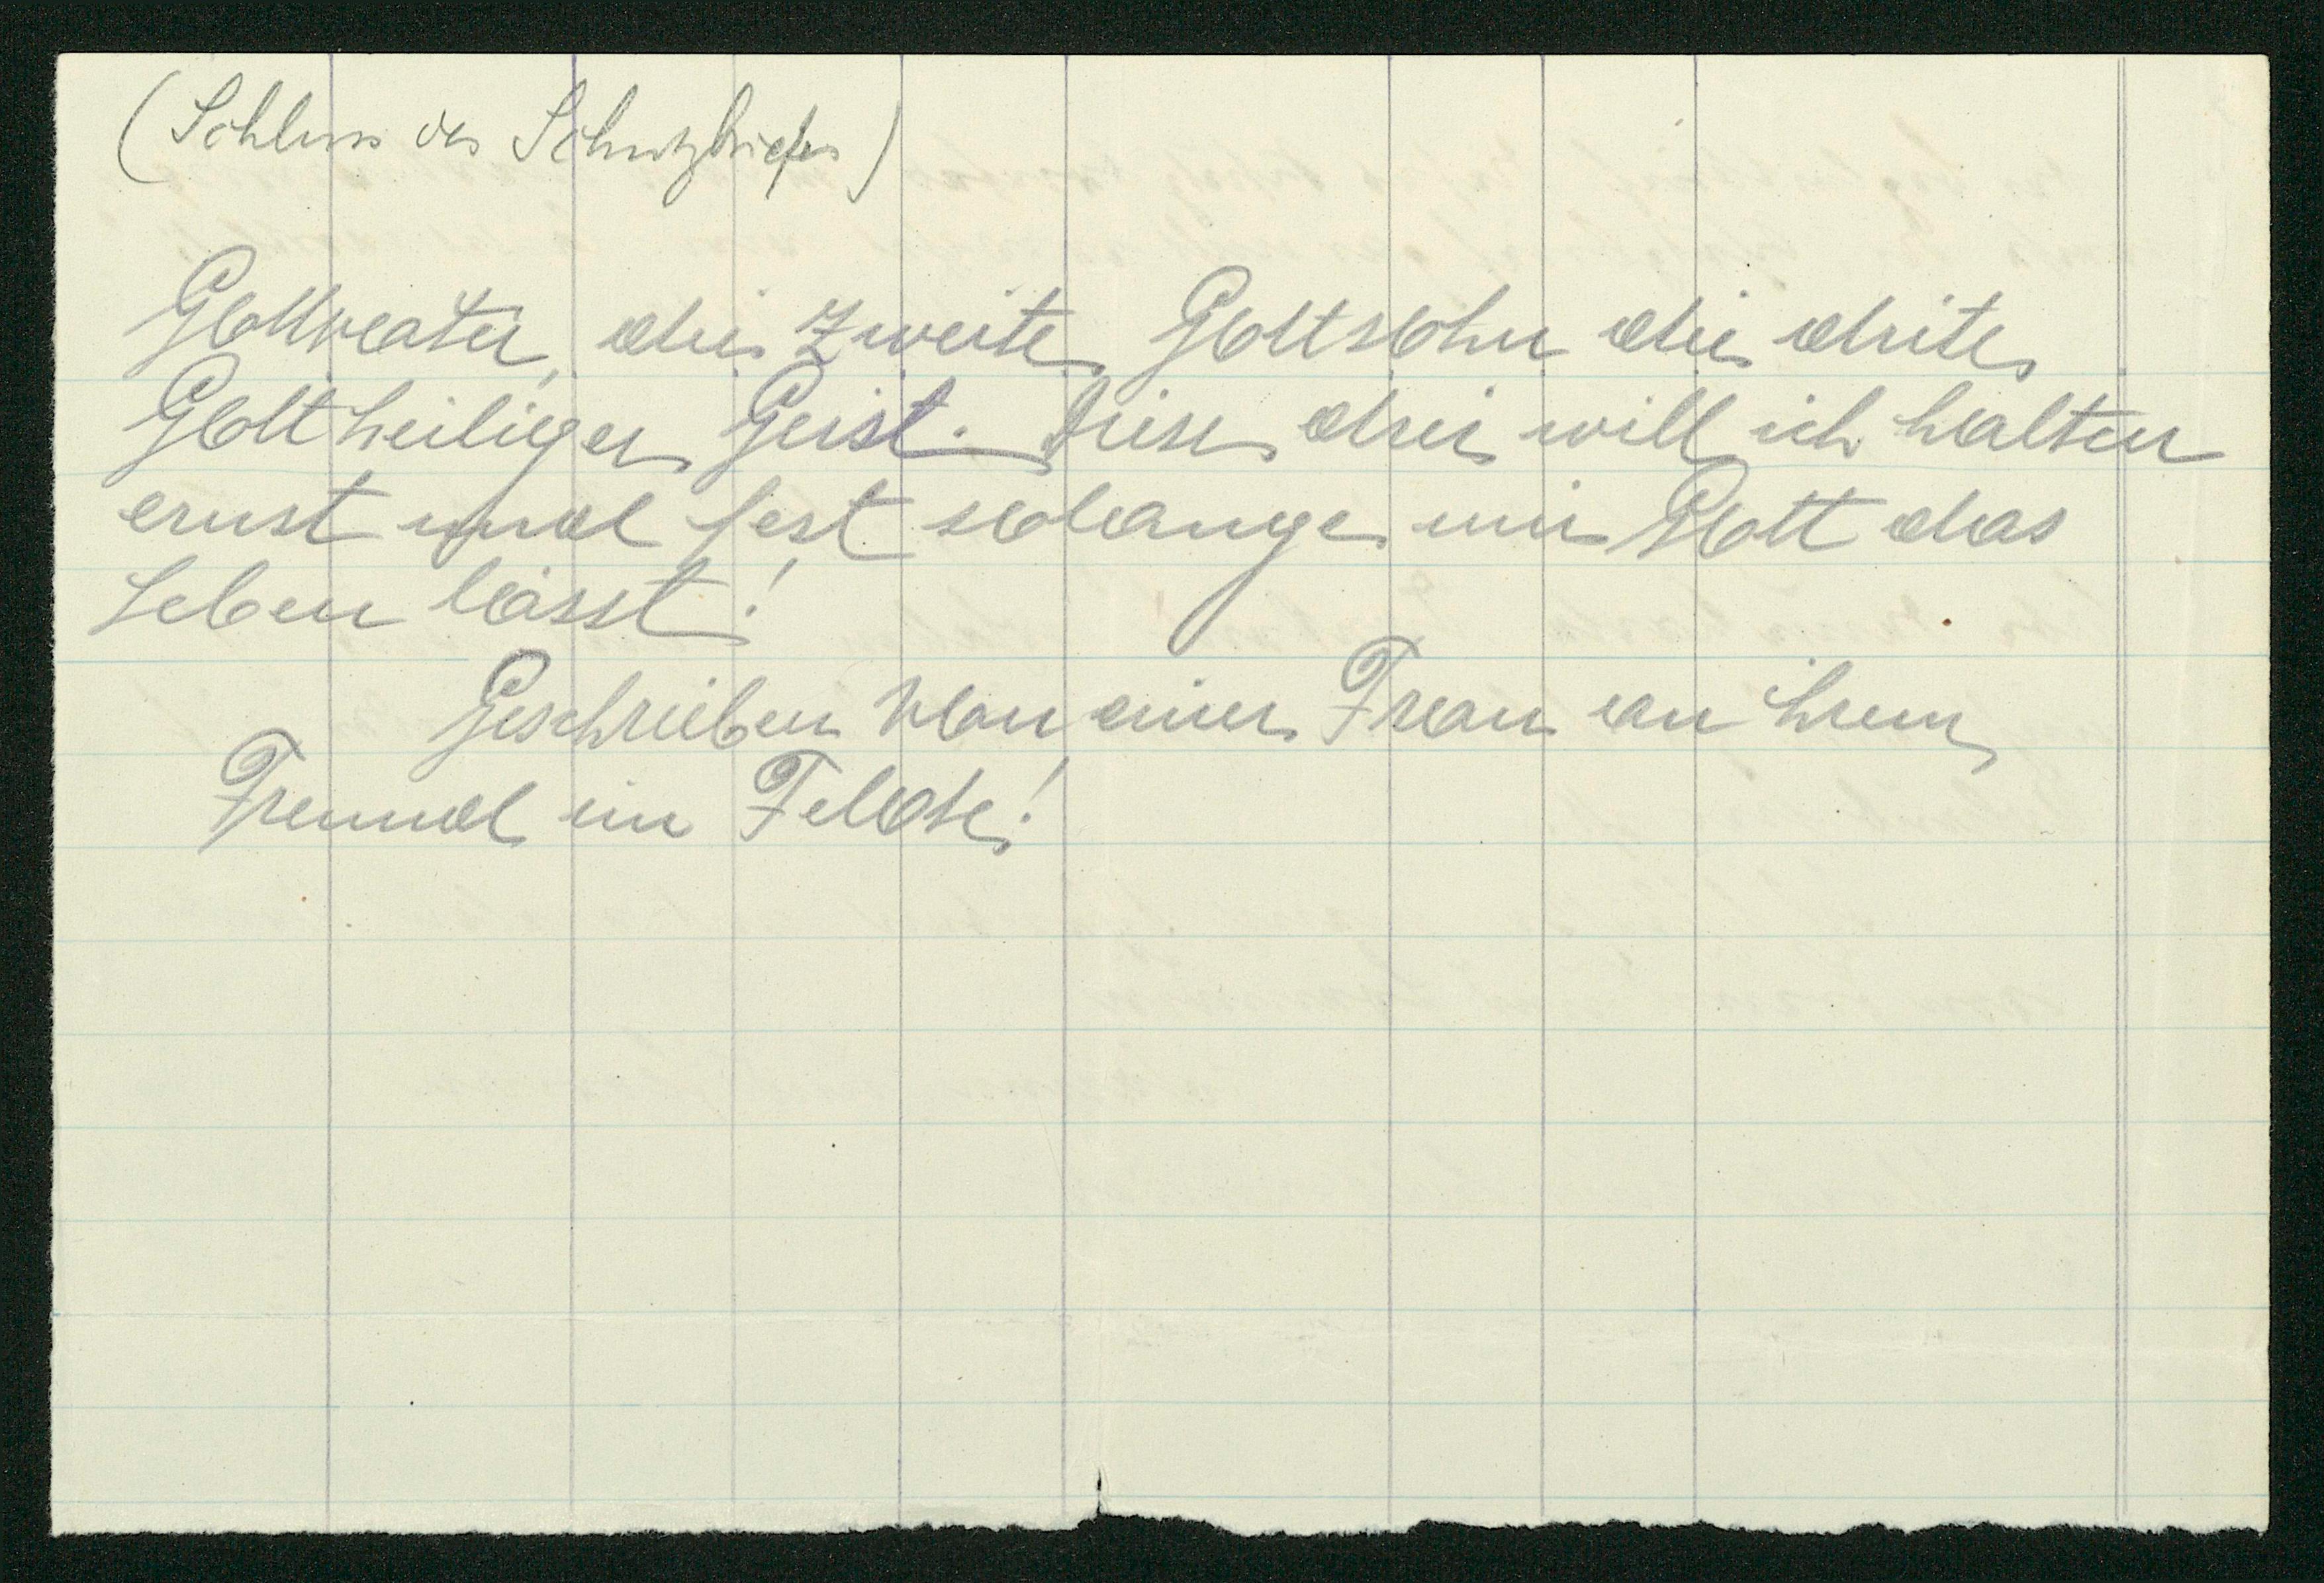 (Schluss des Schutzbriefes)
Gottvater, die zweite Gottsohn die drite
Gott heiliger Geist. Diese drei will ich halten
ernst und fest solange mir Gott das
Leben lässt!
Geschrieben von einer Frau an ihren
Freund im Felde!